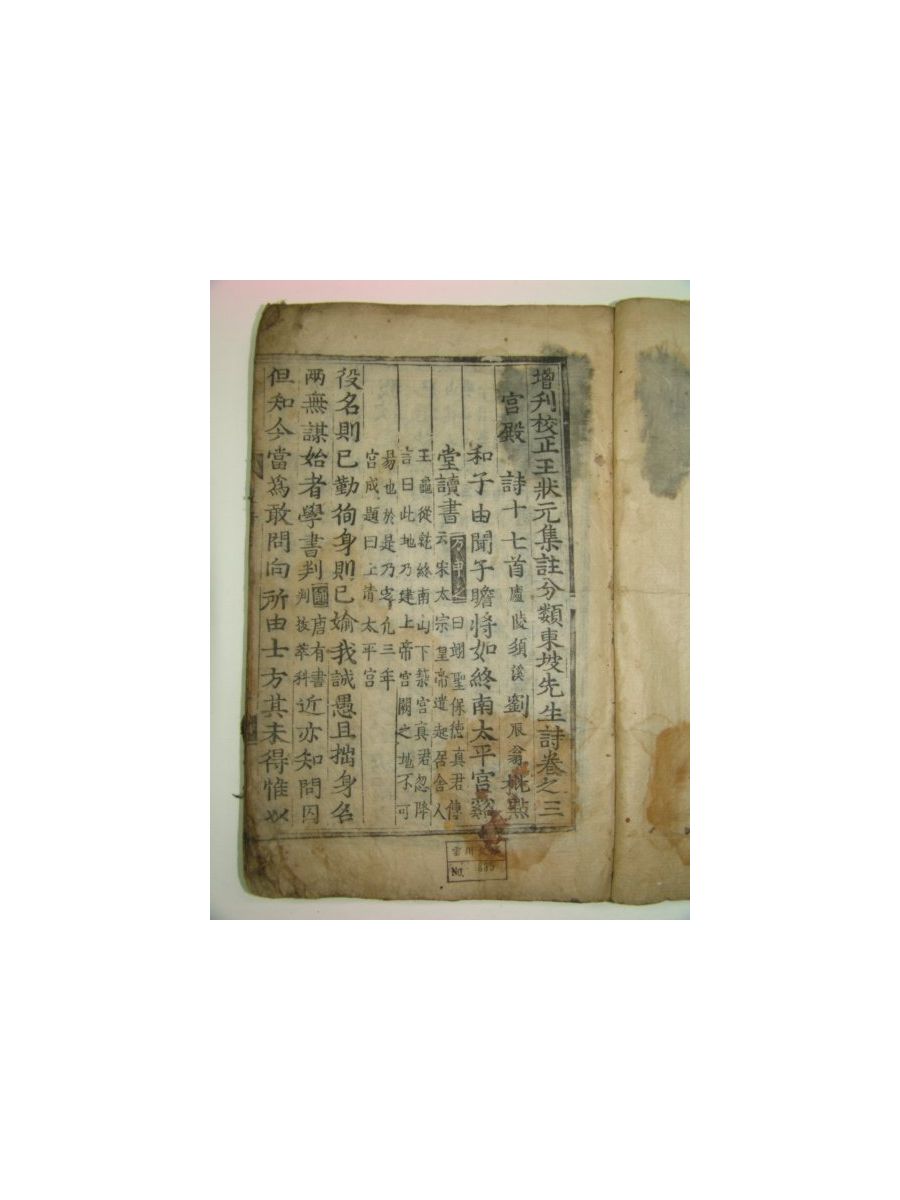 增刋校正王狀元集註分類東坡先生詩卷之三
宮殿 詩十七首 廬陵須溪劉辰翁批點
和子由聞子瞻將如終南太平宮谿
堂讀書
万申之曰翊聖保德真君傳
云宋太宗皇帝遣起居舍人
王龜從就終南山下築宮真君忽降
言曰此地乃建上帝宮闕之地不可
易也於是乃定凡三年
宮成題曰上清太平宮
役名則已勤徇身則已媮我誠愚且拙身名
兩無謀始者學書判
師唐有書
判拔萃科
近亦知問囚
但知今當爲敢問向所由士方其未得惟以
No.